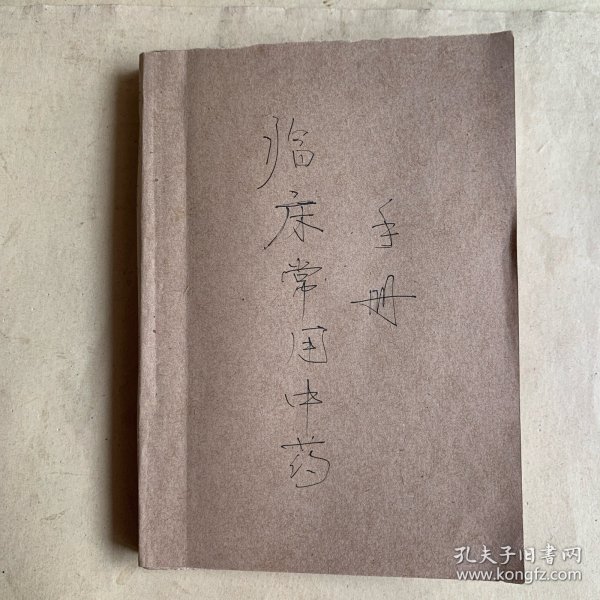 临床常用中药
手册
孔夫子旧書网
www.kongfz.com